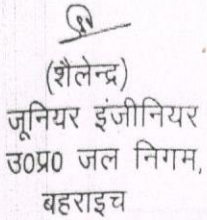 (शैलेन्द्र)
जूनियर इंजीनियर
उ०प्र० जल निगम,
बहराइच